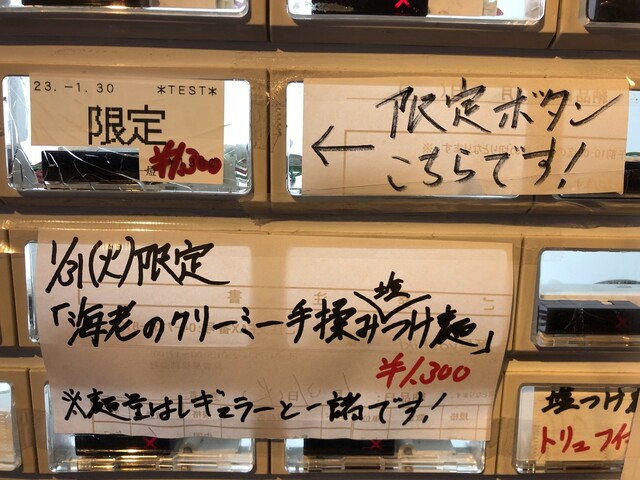 23.-1.30 *TEST*
限定
¥1,300
← 限定ボタン
こちらです!
1/31(火)限定
「海老のクリーミー手揉み塩つけ麺」
¥1,300
※麺量はレギュラーと一緒です!
塩つけ
トリュフ